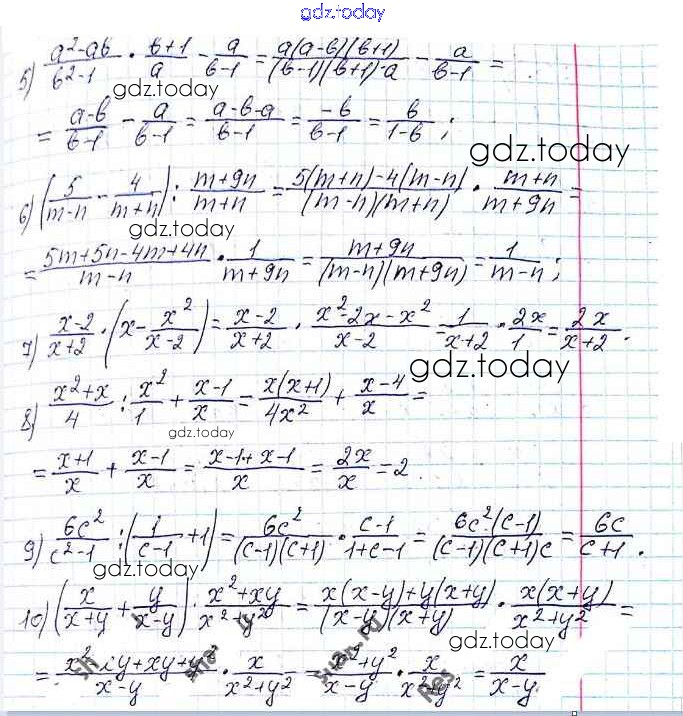 gdz.today
5) (a²-ab)/(b²-1) · (b+1)/a - a/(b-1) = (a(a-b)(b+1))/((b-1)(b+1)·a) - a/(b-1) =
gdz.today
= (a-b)/(b-1) - a/(b-1) = (a-b-a)/(b-1) = (-b)/(b-1) = b/(1-b) ;
gdz.today
6) (5/(m-n) - 4/(m+n)) : (m+9n)/(m+n) = (5(m+n)-4(m-n))/((m-n)(m+n)) · (m+n)/(m+9n) =
gdz.today
= (5m+5n-4m+4n)/(m-n) · 1/(m+9n) = (m+9n)/((m-n)(m+9n)) = 1/(m-n) ;
7) (x-2)/(x+2) · (x - x²/(x-2)) = (x-2)/(x+2) · (x²-2x-x²)/(x-2) = 1/(x+2) · 2x/1 = 2x/(x+2) .
gdz.today
8) (x²+x)/4 : x²/1 + (x-1)/x = (x(x+1))/(4x²) + (x-4)/x =
gdz.today
= (x+1)/x + (x-1)/x = (x-1+x-1)/x = 2x/x = 2
9) 6c²/(c²-1) : (1/(c-1) + 1) = 6c²/((c-1)(c+1)) · (c-1)/(1+c-1) = (6c²(c-1))/((c-1)(c+1)c) = 6c/(c+1) .
gdz.today
10) (x/(x+y) + y/(x-y)) · (x²+xy)/(x²+y²) = (x(x-y)+y(x+y))/((x-y)(x+y)) · (x(x+y))/(x²+y²) =
gdz.today
= (x²-xy+xy+y²)/(x-y) · x/(x²+y²) = (x²+y²)/(x-y) · x/(x²+y²) = x/(x-y)